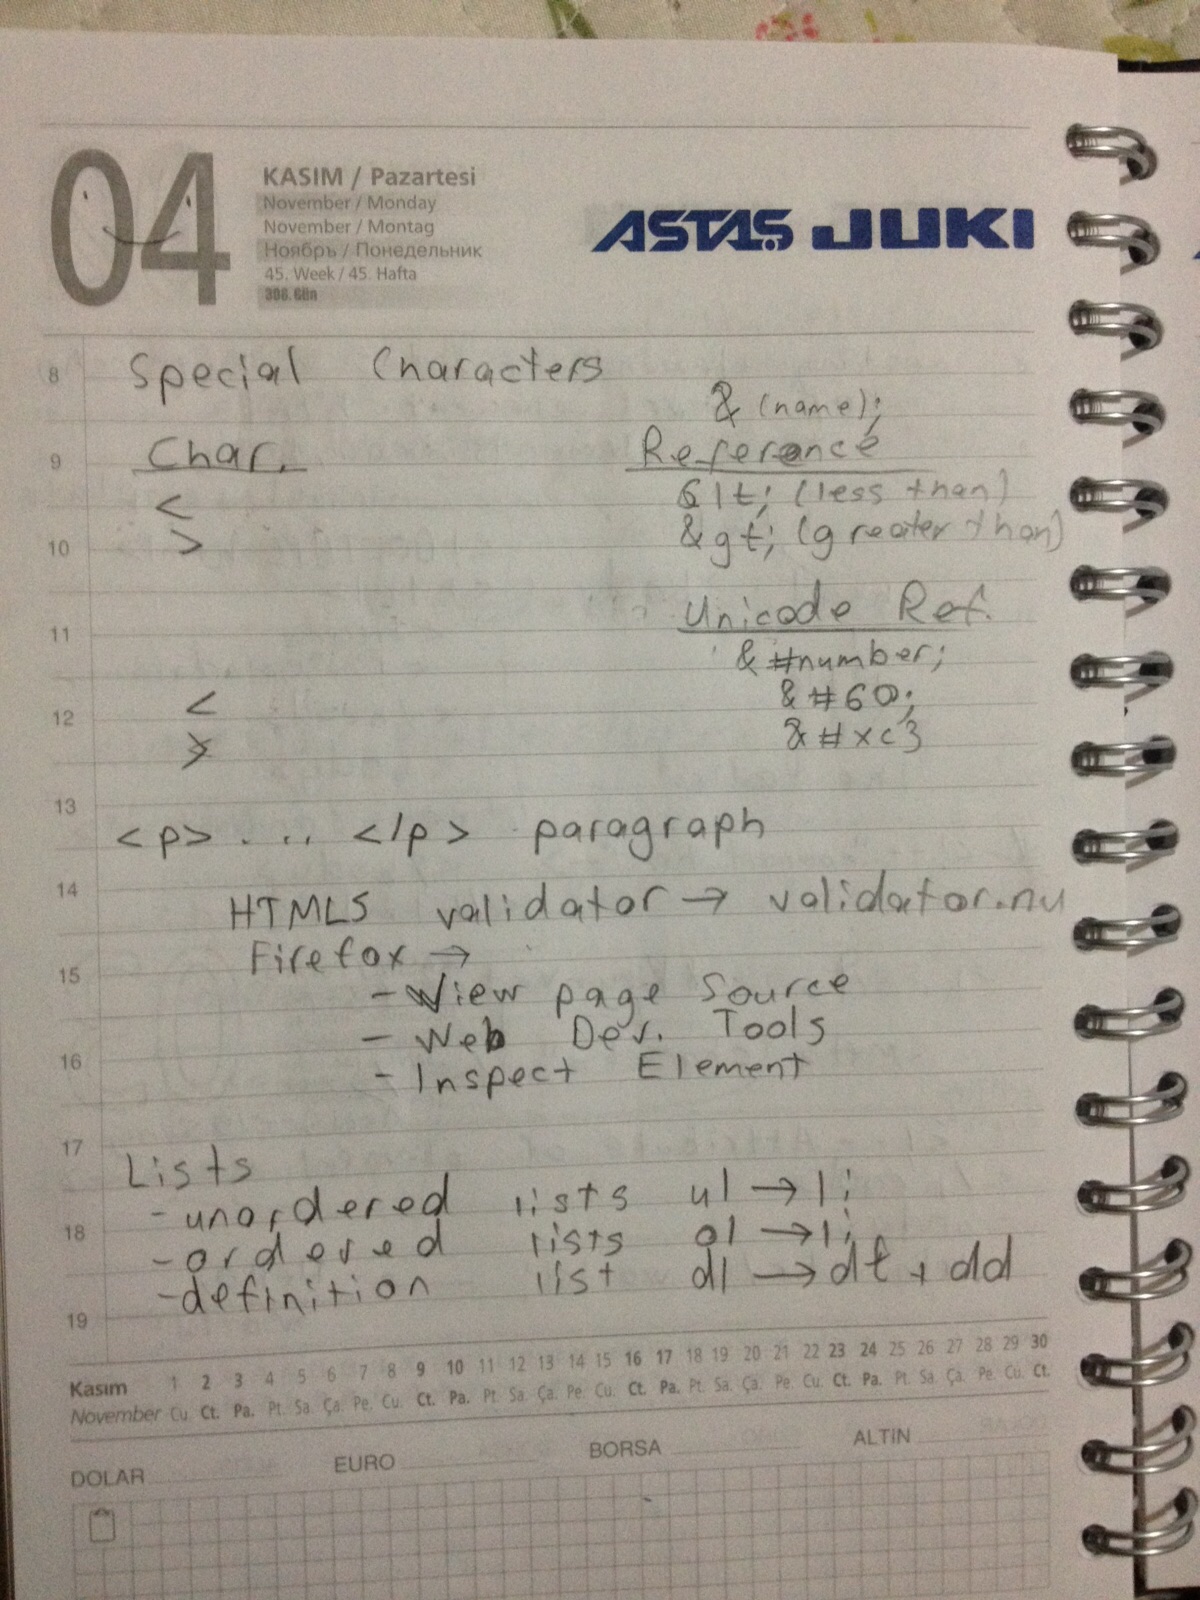 04
KASIM / Pazartesi
November / Monday
November / Montag
Ноябрь / Понедельник
45. Week / 45. Hafta
308. Gün
ASTAŞ JUKI
8 Special Characters
& (name);
9 Char. Reference
< &lt; (less than)
10 > &gt; (greater than)
11 Unicode Ref.
&#number;
12 < &#60;
> &#xc3
13
<p> ... </p> paragraph
14 HTML5 validator → validator.nu
15 Firefox →
- View page Source
- Web Dev. Tools
16 - Inspect Element
17 Lists
- unordered lists ul → li
18 - ordered lists ol → li
- definition list dl → dt + dd
19
Kasım 1 2 3 4 5 6 7 8 9 10 11 12 13 14 15 16 17 18 19 20 21 22 23 24 25 26 27 28 29 30
November Cu. Ct. Pa. Pt. Sa. Ça. Pe. Cu. Ct. Pa. Pt. Sa. Ça. Pe. Cu. Ct. Pa. Pt. Sa. Ça. Pe. Cu. Ct. Pa. Pt. Sa. Ça. Pe. Cu. Ct.
DOLAR EURO BORSA ALTIN